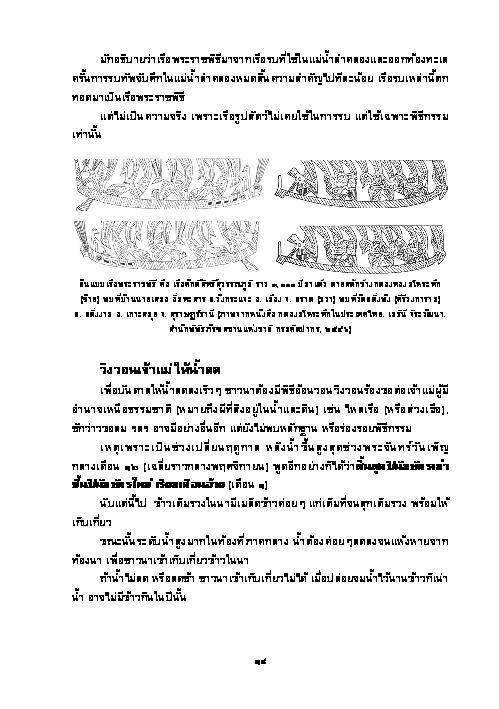 มักอธิบายว่าเรือพระราชพิธีมาจากเรือรบที่ใช้ในแม่น้ำลำคลองและออกท้องทะเล
ครั้นการรบทัพจับศึกในแม่น้ำลำคลองหมดสิ้นความสำคัญไปทีละน้อย เรือรบเหล่านี้ตก
ทอดมาเป็นเรือพระราชพิธี
แต่ไม่เป็นความจริง เพราะเรือรูปสัตว์ไม่เคยใช้ในการรบ แต่ใช้เฉพาะพิธีกรรม
เท่านั้น
ต้นแบบเรือพระราชพิธี คือ เรือศักดิ์สิทธิ์สุวรรณภูมิ ราว ๓,๐๐๐ ปีมาแล้ว ลายสลักข้างกลองทองมโหระทึก
(ซ้าย) พบที่บ้านนายเตอง อ. จ. ตราด (ขวา) พบที่วัดตลิ่งพัง (คีรีวงการาม)
ต. ตลิ่งงาม อ. เกาะสมุย จ. สุราษฎร์ธานี (ภาพจากหนังสือ กลองมโหระทึกในประเทศไทย. เมธินี จิระวัฒนา.
สำนักพิพิธภัณฑสถานแห่งชาติ กรมศิลปากร, ๒๕๔๖)
วิงวอนเจ้าแม่ ให้น้ำลด
เพื่อบันดาลให้น้ำลดลงเร็วๆ ชาวนาต้องมีพิธีอ้อนวอนวิงวอนร้องขอต่อเจ้าแม่ผู้มี
อำนาจเหนือธรรมชาติ (หมายถึงผีที่สิงอยู่ในน้ำและดิน) เช่น ไหลเรือ (หรือล่วงเรือ),
ชักว่าวขอลม ฯลฯ อาจมีอย่างอื่นอีก แต่ยังไม่พบหลักฐาน หรือร่องรอยพิธีกรรม
เหตุเพราะเป็นช่วงเปลี่ยนฤดูกาล หลังน้ำขึ้นสูงสุดช่วงพระจันทร์วันเพ็ญ
กลางเดือน ๑๒ (เฉลี่ยราวกลางพฤศจิกายน) พูดอีกอย่างก็ได้ว่าสิ้นสุดปีนักษัตรเก่า
ขึ้นปีนักษัตรใหม่ เรียกเดือนอ้าย (เดือน ๑)
นับแต่นี้ไป ข้าวเต็มรวงในนามีเมล็ดข้าวค่อยๆ แก่เต็มที่จนสุกเต็มรวง พร้อมให้
เก็บเกี่ยว
ขณะนั้นระดับน้ำสูงมากในท้องที่ภาคกลาง น้ำต้องค่อยๆลดลงจนแห้งหายจาก
ท้องนา เพื่อชาวนาเข้าเก็บเกี่ยวข้าวในนา
ถ้าน้ำไม่ลด หรือลดช้า ชาวนาเข้าเก็บเกี่ยวไม่ได้ เมื่อปล่อยจมน้ำไว้นานข้าวก็เน่า
น้ำ อาจไม่มีข้าวกินในปีนั้น
๑๔